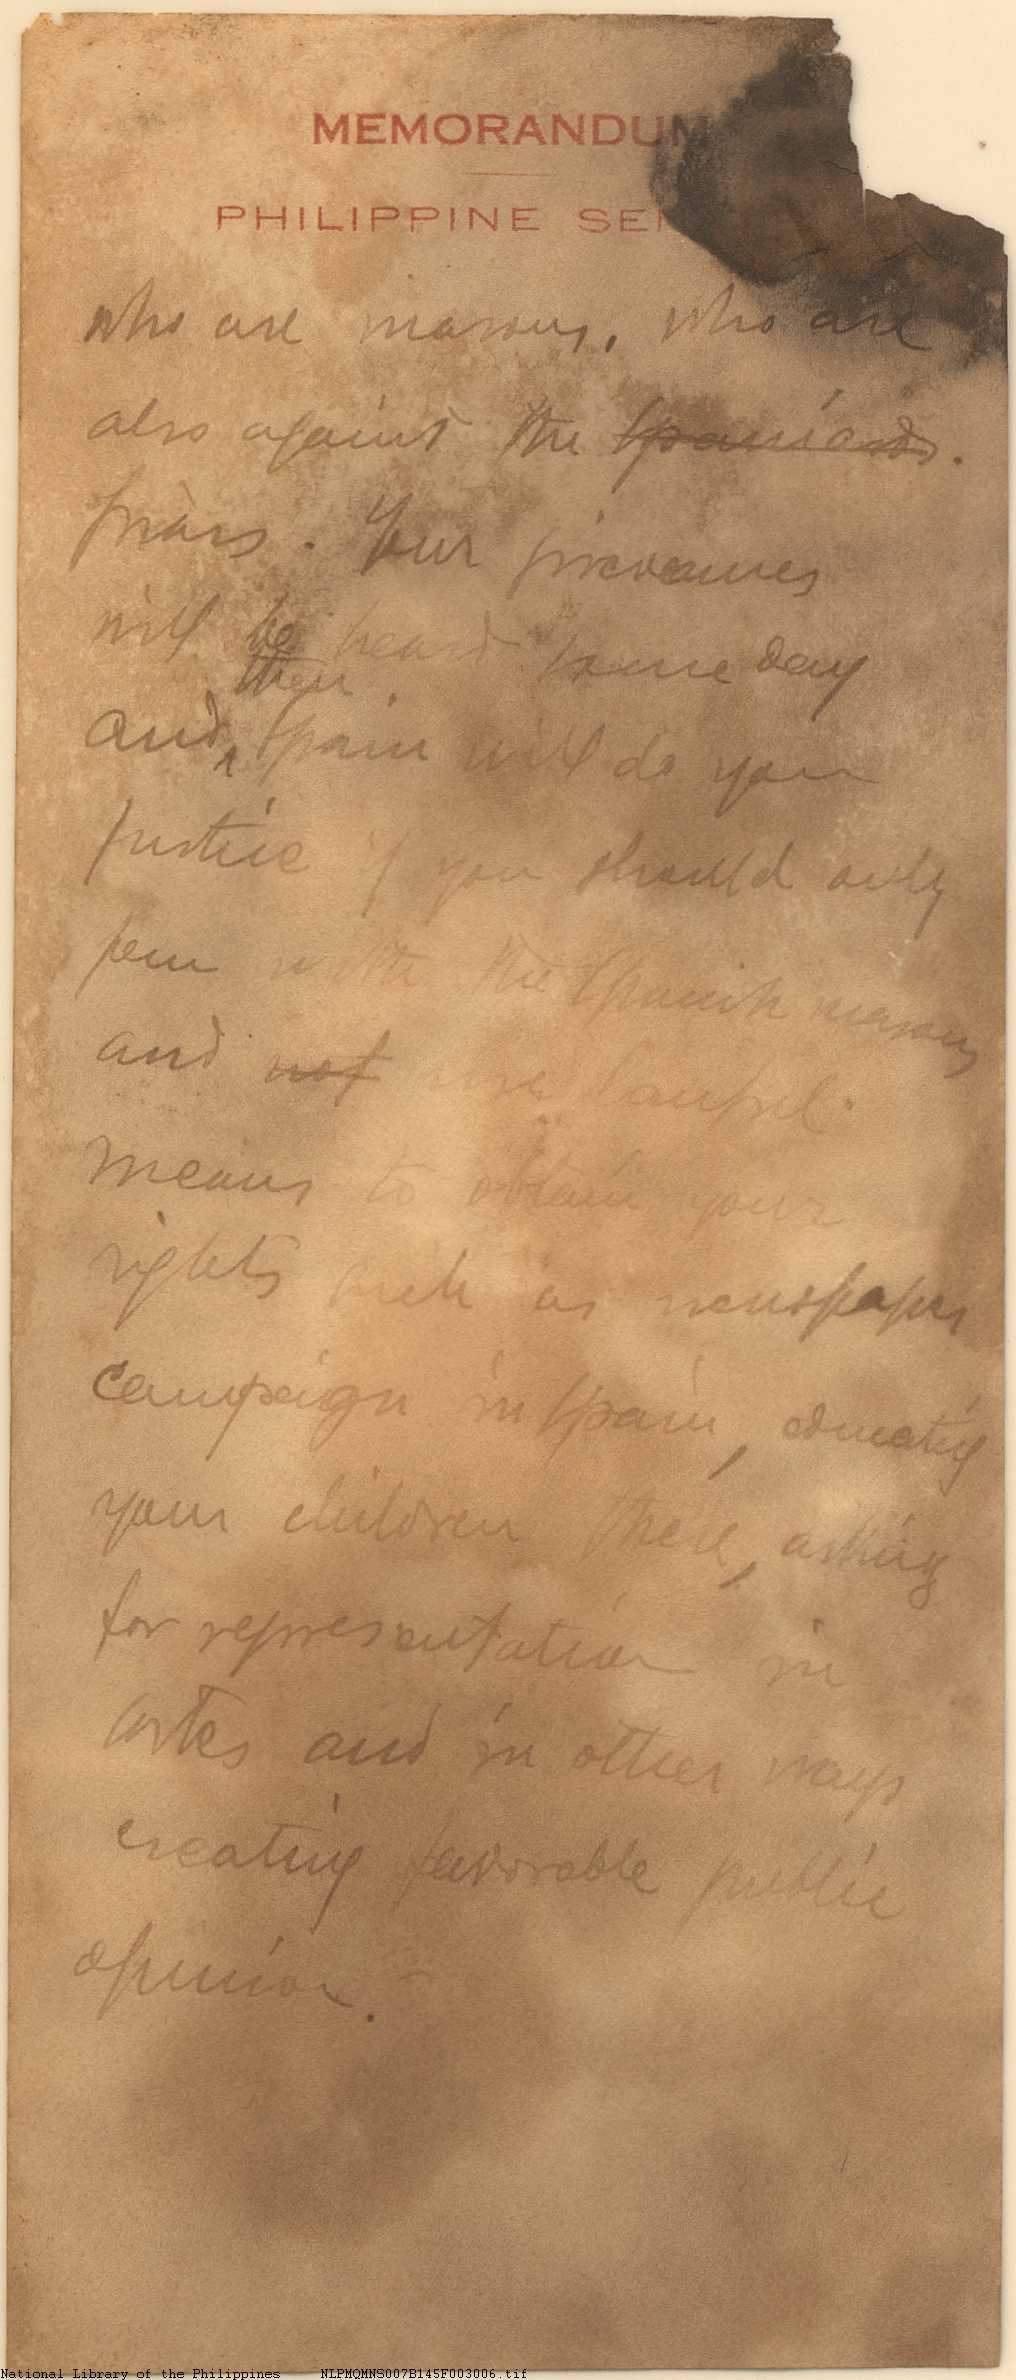 MEMORANDUM
PHILIPPINE SEN
who are masons, who are
also against the Spaniards.
friars. Your grievances
will be heard some day
then
and Spain will do you
justice if you should only
join with the Spanish masons
and not use lawful
means to obtain your
rights such as newspaper
campaign in Spain, educating
your children there, asking
for representation in
Cortes and in other ways
creating favorable public
opinion.
National Library of the Philippines NLPMQMNS007B145F003006.tif